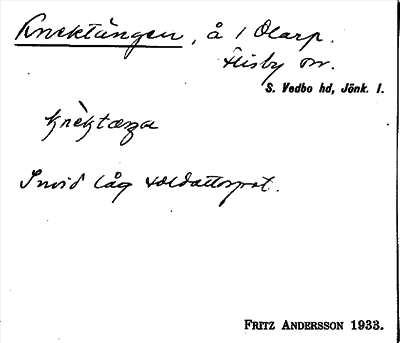 Knektängen, å 1 Olarp.
Flisby sn.
S. Vedbo hd, Jönk. l.
knèktæŋa
Invid låg soldattorpet.
FRITZ ANDERSSON 1933.